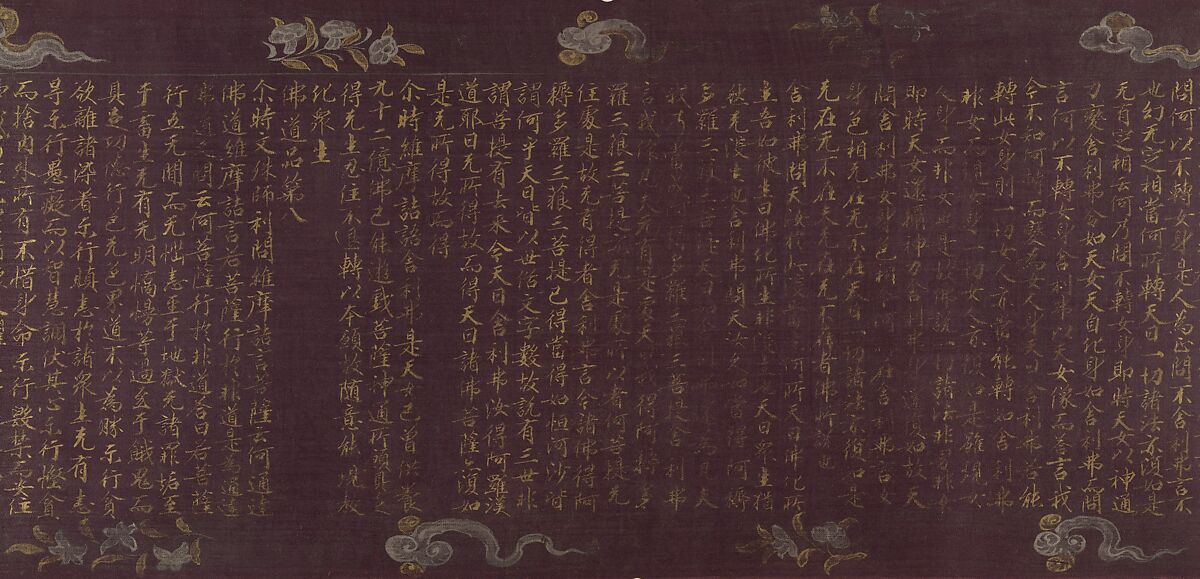 問何以不轉女身是人為正問不舍利弗言不
也幻无定相當何所轉天曰一切諸法亦復如是
无有定相云何乃問不轉女身即時天女以神通
力變舍利弗令如天女天自化身如舍利弗而問
言何以不轉女身舍利弗以天女像而答言我
今不知何轉而變為女人身天曰舍利弗若能
轉此女身則一切女人亦當能轉如舍利弗
非女而現女身一切女人亦復如是雖現女
身而非女也是故佛說一切諸法非男非女
即時天女還攝神力舍利弗身還復如故天
問舍利弗女身色相今何所在舍利弗言女
身色相无在无不在天曰一切諸法亦復如是
无在无不在夫无在无不在者佛所說也
舍利弗問天汝於此沒當生何所天曰佛化所
生吾如彼生曰佛化所生非沒生也天曰眾生猶
然无沒生也舍利弗問天汝久如當得阿耨
多羅三藐三菩提天曰如舍利弗還為凡夫
我乃當成阿耨多羅三藐三菩提舍利弗
言我作凡夫无有是處天曰我得阿耨多
羅三藐三菩提亦无是處所以者何菩提无
住處是故无有得者舍利弗言今諸佛得阿
耨多羅三藐三菩提已得當得如恒河沙皆
謂何乎天曰皆以世俗文字數故說有三世非
謂菩提有去來今天曰舍利弗汝得阿羅漢
道耶曰无所得故而得天曰諸佛菩薩亦復如
是无所得故而得
尒時維摩詰語舍利弗是天女已曾供養
九十二億佛已能遊戲菩薩神通所願具足
得无生忍住不退轉以本願故隨意能現教
化眾生
佛道品第八
尒時文殊師利問維摩詰言菩薩云何通達
佛道維摩詰言若菩薩行於非道是為通達
佛道又問云何菩薩行於非道答曰若菩薩
行五无間而无惱恚至于地獄无諸罪垢至
于畜生无有无明憍慢等過至于餓鬼而
具足功德行色无色界道不以為勝示行貪
欲離諸染著示行瞋恚於諸眾生无有恚
㝵示行愚癡而以智慧調伏其心示行慳貪
而捨內外所有不惜身命示行毀禁而安住